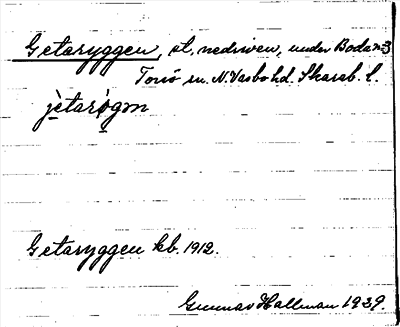 Getaryggen, st, nedriven, under Boda nr 3
Torsö sn. N. Vadsbo hd. Skarab. l.
jètarọ̀gən
Getaryggen kb. 1912.
Gunnar Hallman 1929.